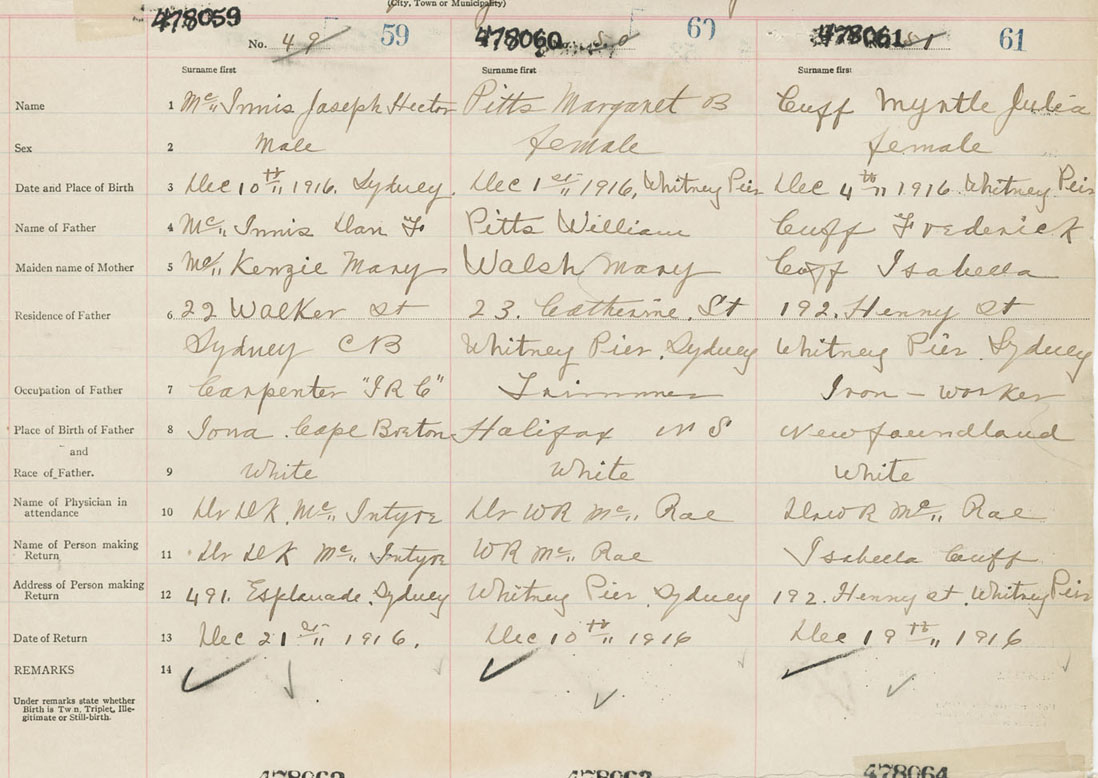 (City, Town or Municipality)
478059 No. 49 59 478060 50 60 478061 51 61
Surname first Surname first Surname first
Name 1 Mc Innis Joseph Hector Pitts Margaret B Cuff Myrtle Julia
Sex 2 Male female female
Date and Place of Birth 3 Dec 10th 1916. Sydney. Dec 1st 1916, Whitney Pier Dec 4th 1916. Whitney Peir
Name of Father 4 Mc Innis Dan F Pitts William Cuff Frederick
Maiden name of Mother 5 Mc Kenzie Mary Walsh Mary Cuff Isabella
Residence of Father 6 22 Walker St 23. Catherine. St 192. Henny St
Sydney CB Whitney Pier. Sydney Whitney Pier. Sydney
Occupation of Father 7 Carpenter "I R C" Trimmer Iron - worker
Place of Birth of Father 8 Iona. Cape Breton Halifax N S Newfoundland
and
Race of Father. 9 White White White
Name of Physician in
attendance 10 Dr D K. Mc Intyre Dr WR Mc Rae Dr W R Mc Rae
Name of Person making
Return 11 Dr D K Mc Intyre WR Mc Rae Isabella Cuff
Address of Person making
Return 12 491. Esplanade. Sydney Whitney Pier. Sydney 192. Henny st. Whitney Peir
Date of Return 13 Dec 21st 1916. Dec 10th 1916 Dec 19th 1916
REMARKS 14
Under remarks state whether
Birth is Twin, Triplet, Ille-
gitimate or Still-birth.
478062 478063 478064